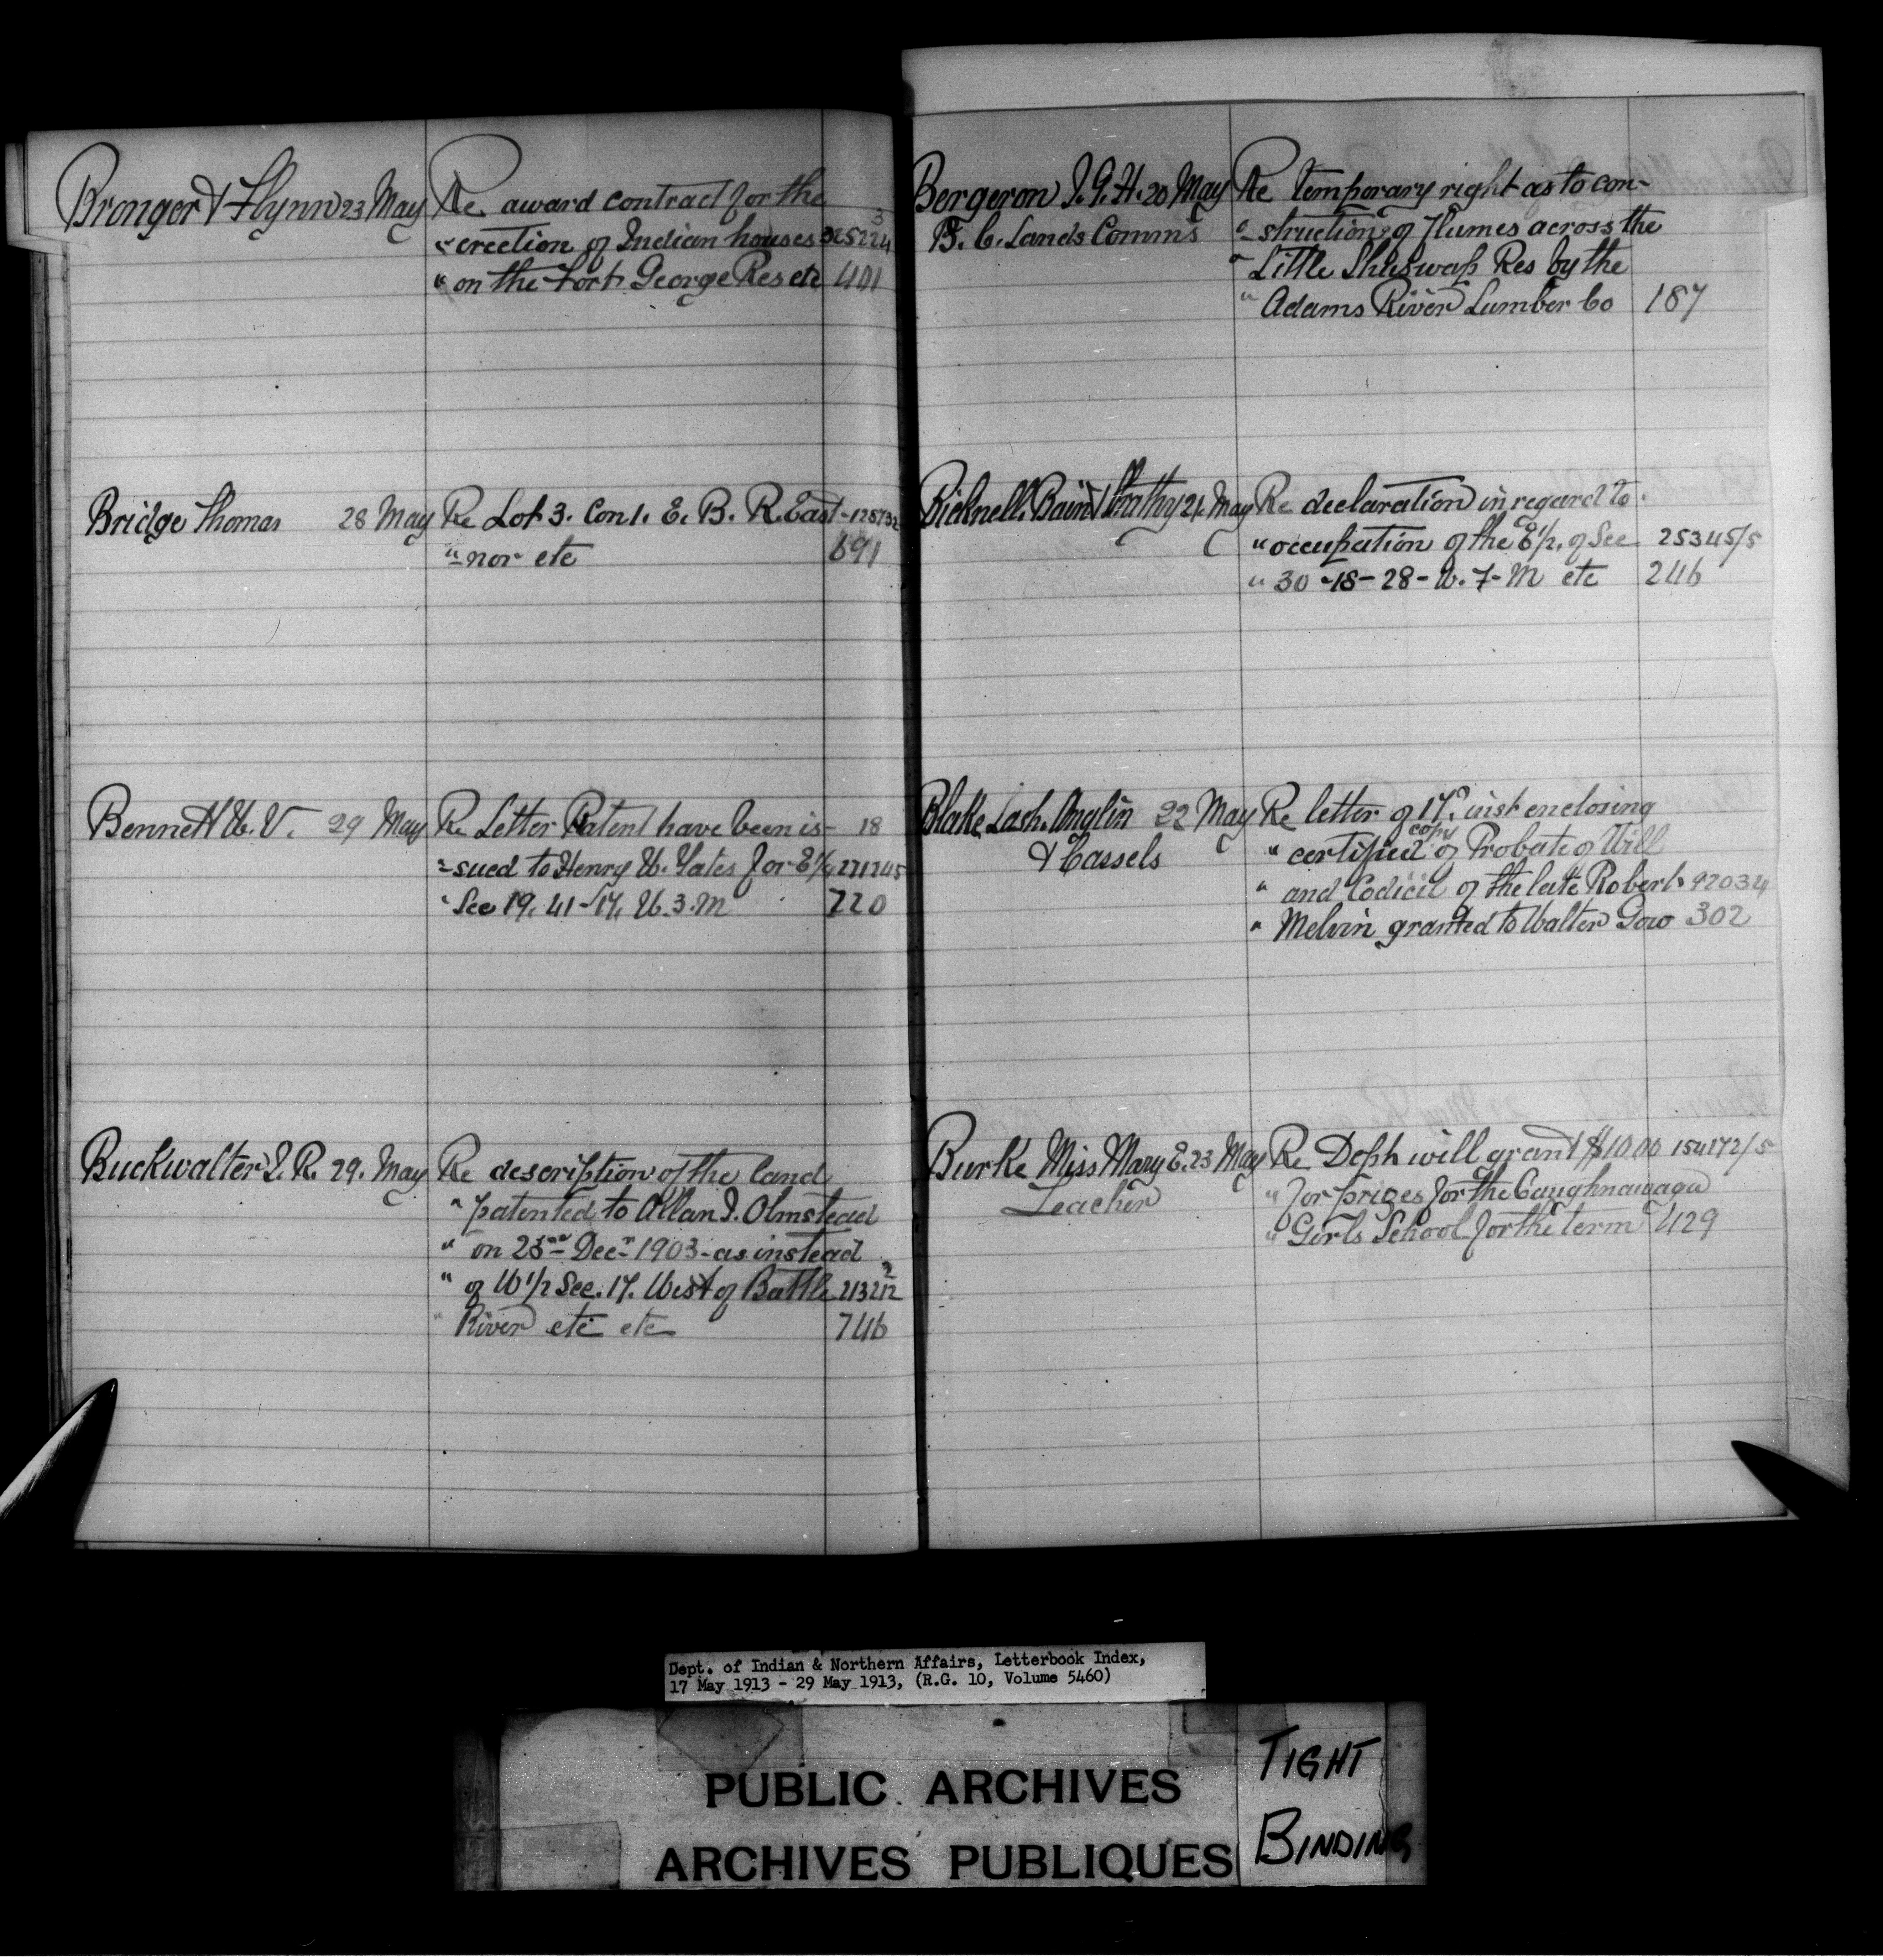 Bronger & Flynn 23 May Re award contract for the
" erection of Indian houses 325224 3
" on the Fort George Res etc 401
Bridge Thomas 28 May Re Lot 3. Con 1. E. B. R. East- 128732
" nor etc 691
Bennett W. V. 29 May Re Letter Patent have been is- 18
" sued to Henry W. Yates for E 1/4 271245
" Sec 19. 41-17. W. 3. M 720
Buckwalter I. R. 29. May Re description of the land
" patented to Allan I. Olmstead
" on 23rd Decr 1903 - as instead
" of W 1/2 Sec. 17. West of Battle 213212 2
" River etc etc 746
Bergeron J. G. H. 20 May Re temporary right as to con-
B. C. Lands Comm's " struction of Flumes across the
" Little Shuswap Res by the
" Adams River Lumber Co 187
Bicknell. Bain & Strathy 21. May Re declaration in regard to
" occupation of the E 1/2. of Sec 25345/5
" 30-18-28-W. 7-M etc 246
Blake Lash. Anglin 22 May Re letter of 17. inst enclosing
& Cassels " certified copy of Probate of Will
" and Codicil of the late Robert 92034
" Melvin granted to Walter Gow 302
Burke Miss Mary E. 23 May Re Dept will grant $10.00 154172/5
Teacher " for prizes for the Caughnawaga
" Girls School for the term 429
Dept. of Indian & Northern Affairs, Letterbook Index,
17 May 1913 - 29 May 1913, (R.G. 10, Volume 5460)
PUBLIC ARCHIVES
ARCHIVES PUBLIQUES
TIGHT
BINDING